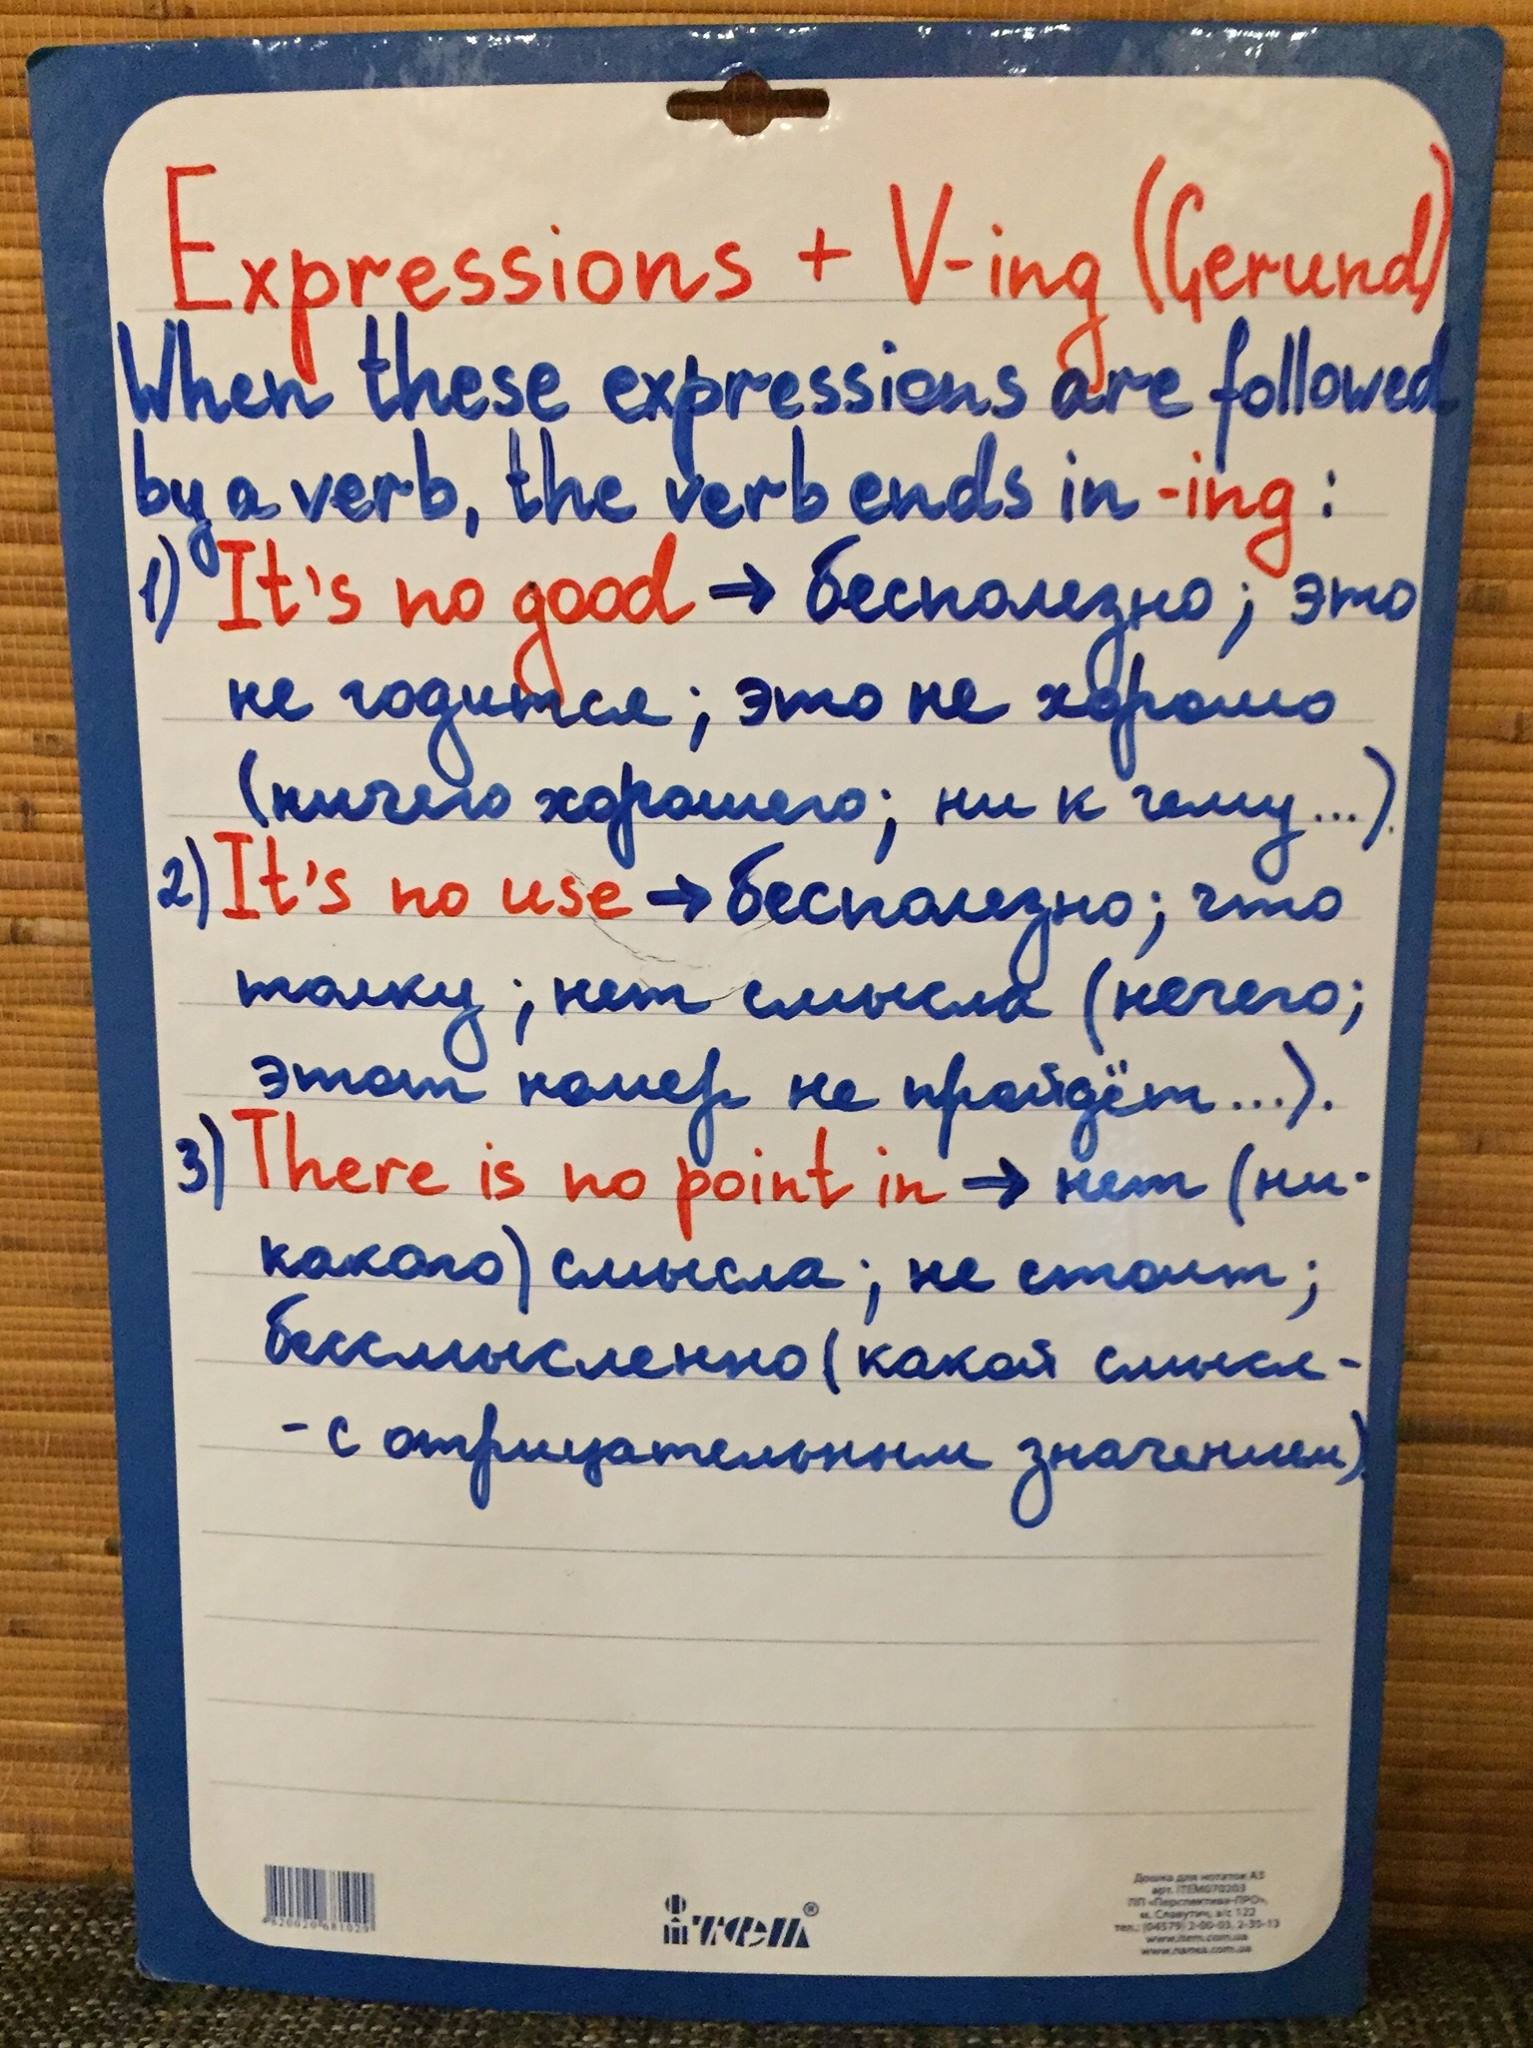 Expressions + V-ing (Gerund)
When these expressions are followed
by a verb, the verb ends in -ing :
1) It's no good → бесполезно; это
не годится; это не хорошо
(ничего хорошего; ни к чему...).
2) It's no use → бесполезно; что
толку; нет смысла (нечего;
этот номер не пройдёт...).
3) There is no point in → нет (ни-
какого) смысла; не стоит;
бессмысленно (какой смысл-
- с отрицательным значением).
item®
Дошка для нотаток А3
арт. ITEM070203
ПП «Перспектива-ПРО»,
м. Славутич, а/с 122
тел.: (04579) 2-00-03, 2-35-13
www.item.com.ua